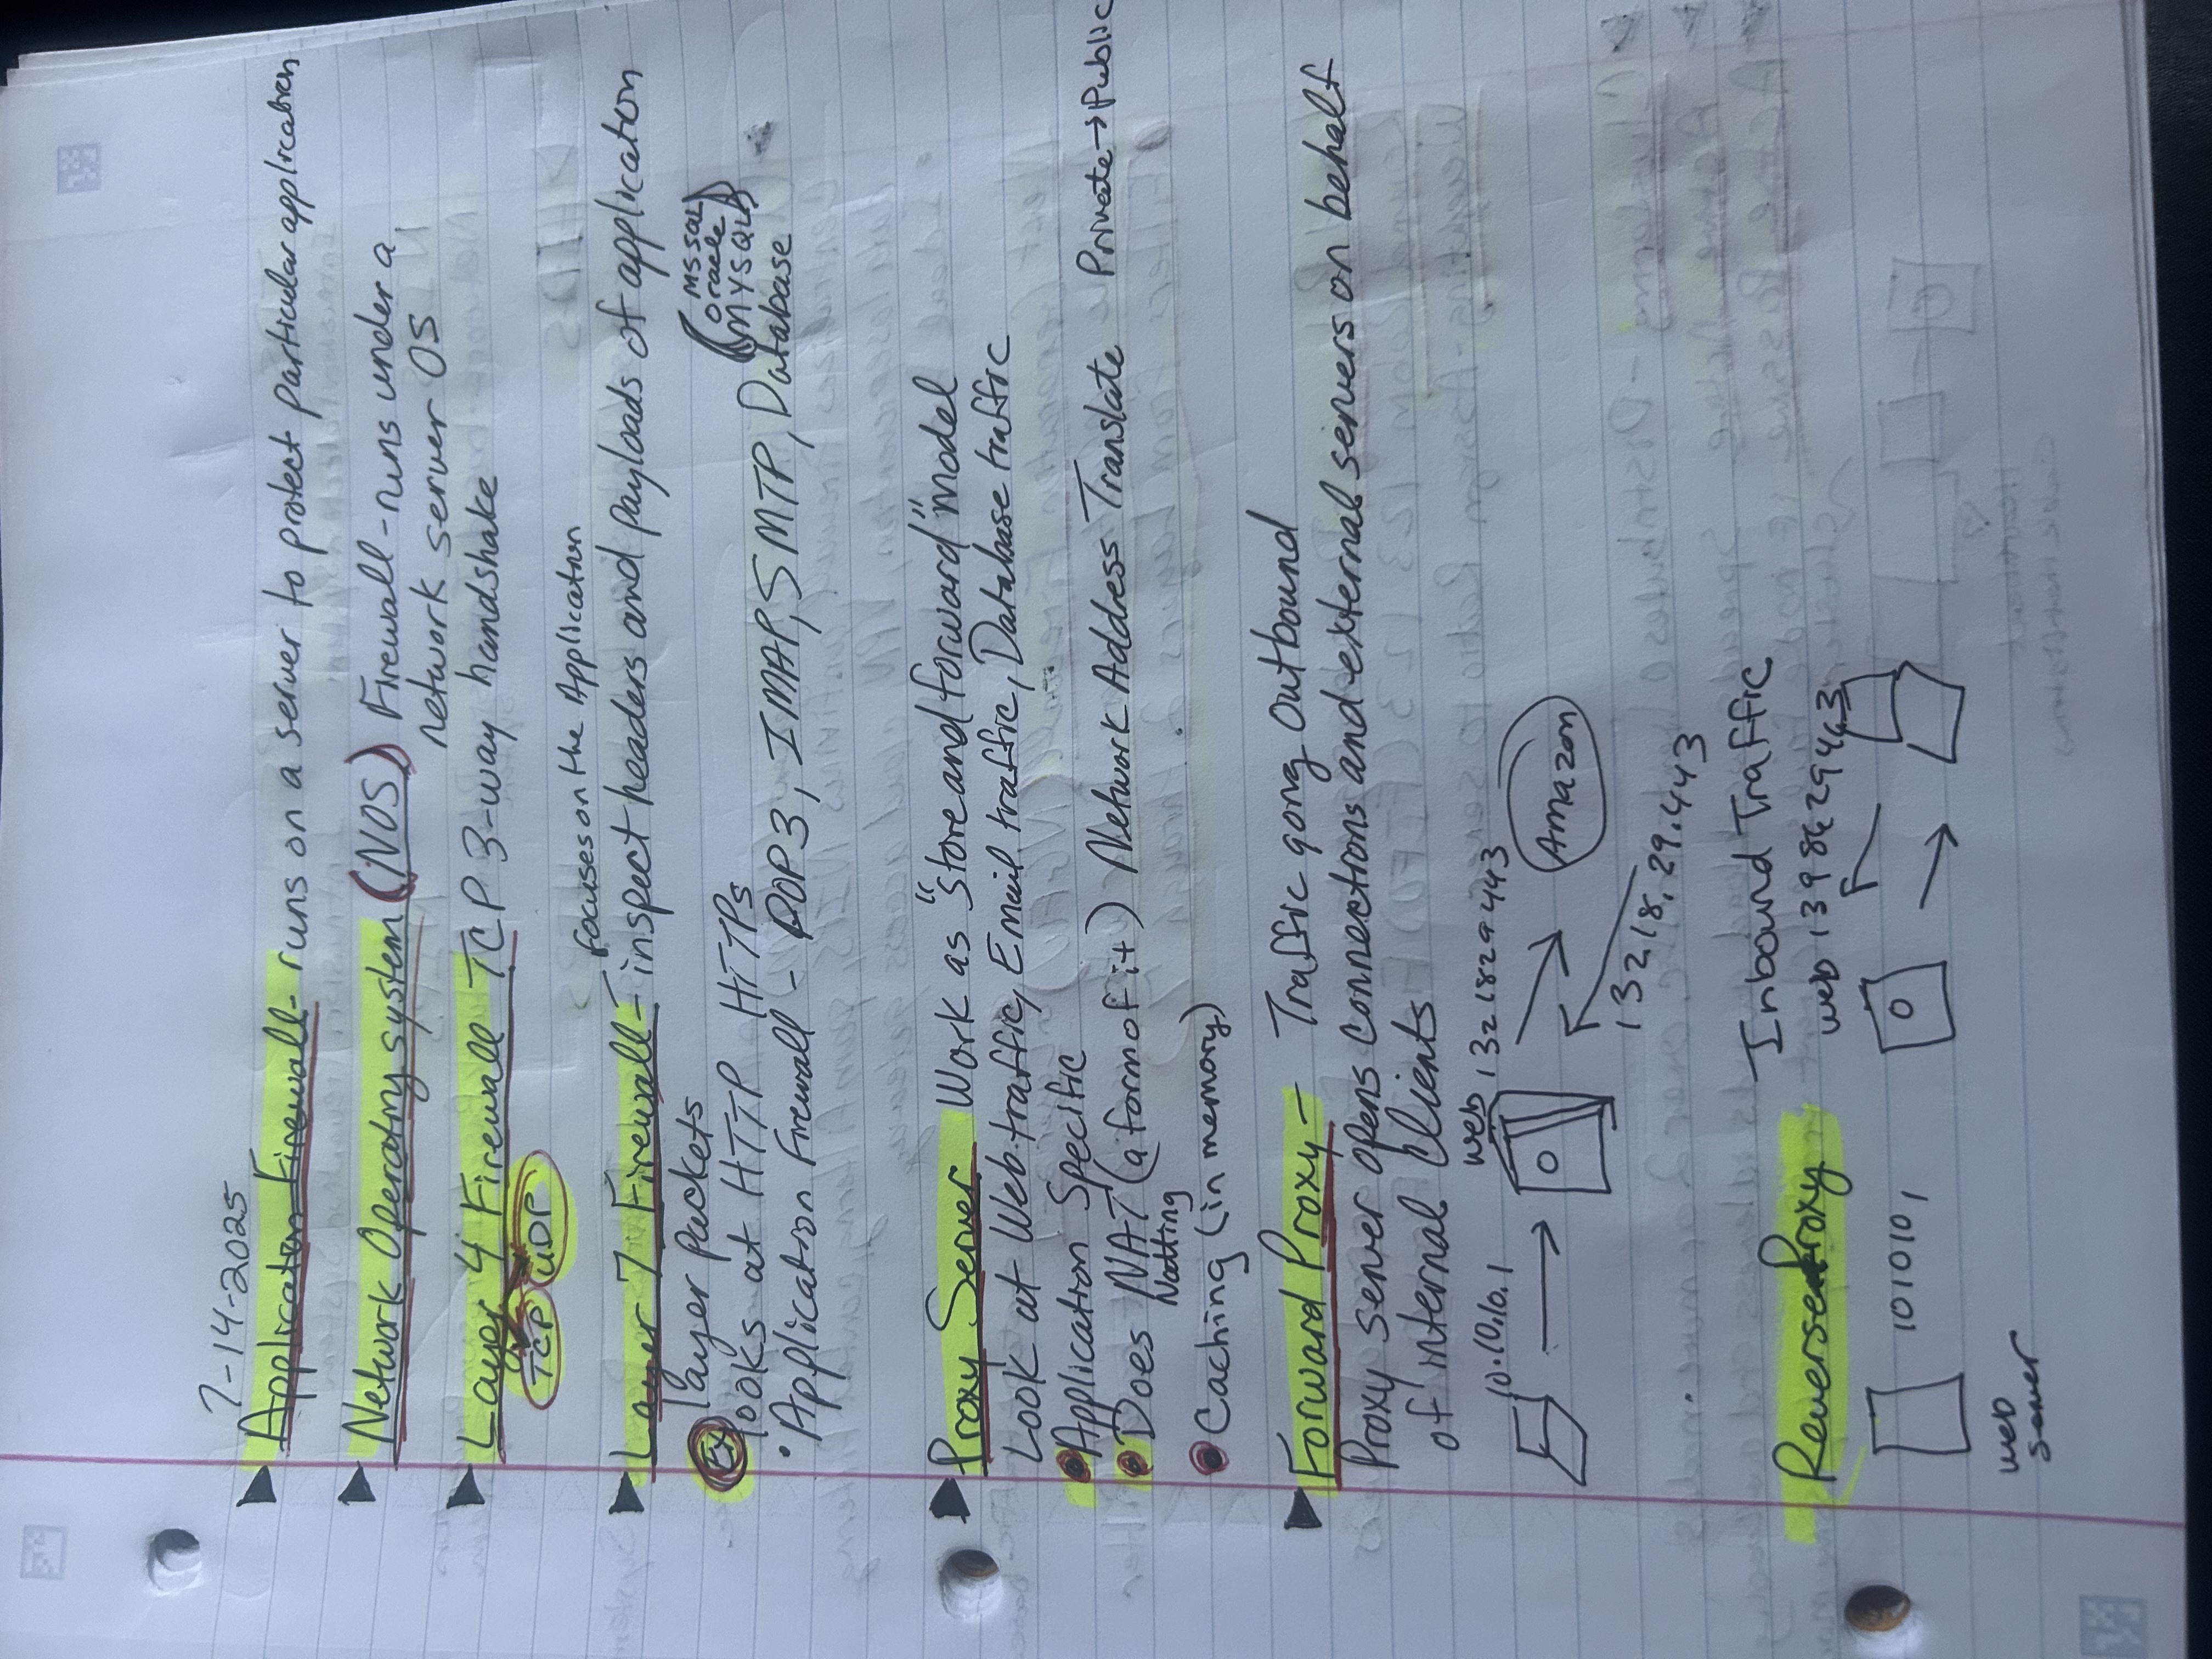 7-14-2025
Application Firewall - runs on a server to protect particular application
Network Operating system (NOS) Firewall - runs under a
network server OS
Layer 4 Firewall TCP 3-way handshake
TCP UDP
focuses on the Application
Layer 7 Firewall - inspect headers and payloads of application
layer packets
Ex
looks at HTTP HTTPs
MSSQL
Oracle
MYSQL
• Application Firewall - POP3, IMAP, SMTP, Database
Proxy Server Work as "store and forward" model
Look at Web traffic, Email traffic, Database traffic
• Application Specific
• Does NAT (a form of it) Network Address Translate Private → Public
Natting
• Caching (in memory)
Forward Proxy - Traffic gong Outbound
Proxy server opens connections and external servers on behalf
of internal clients
10.10.10.1
web
132 1829 443
Amazon
132,18.29.443
Inbound Traffic
Reverse Proxy
web
101010,
web
server